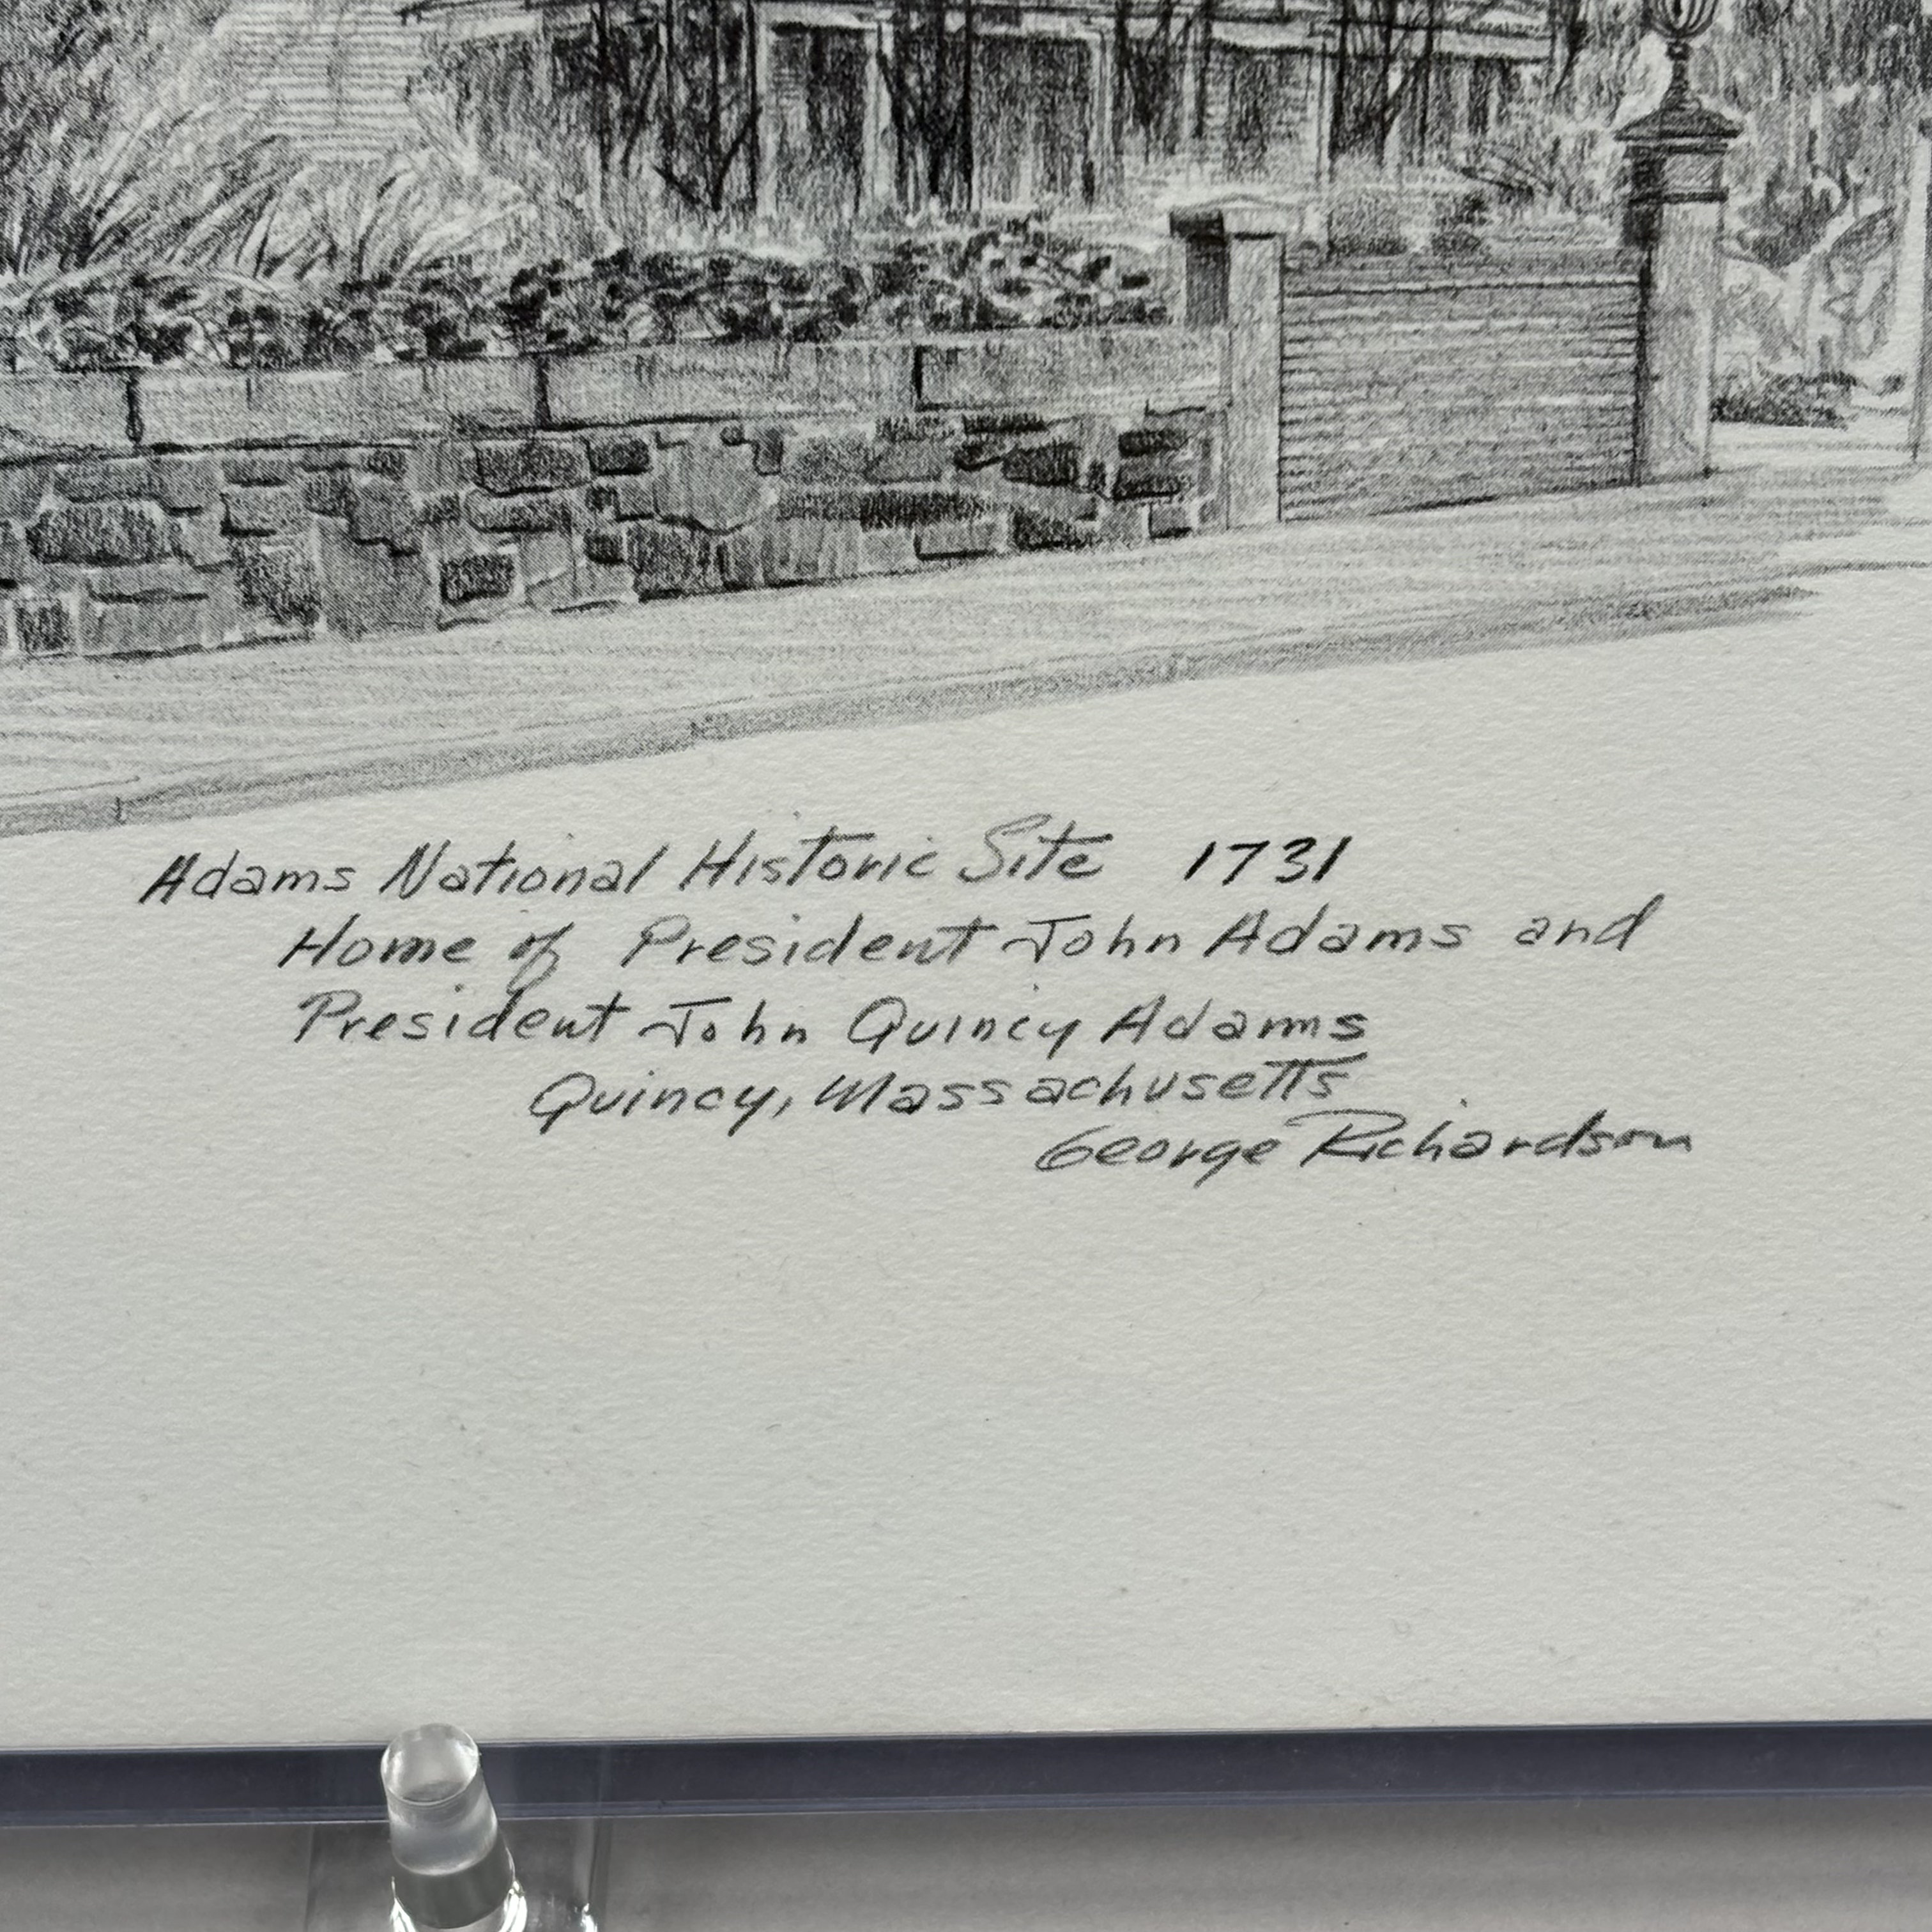 Adams National Historic Site 1731
Home of President John Adams and
President John Quincy Adams
Quincy, Massachusetts
George Richardson